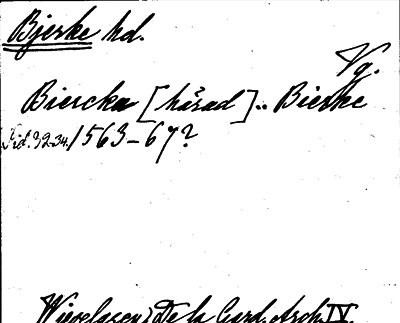 Bjerke hd.
Vg.
Biercka [härad].. Bierke
sid. 32-34./1563-67?
Wieselgren, De la Gard. Arch. IV.